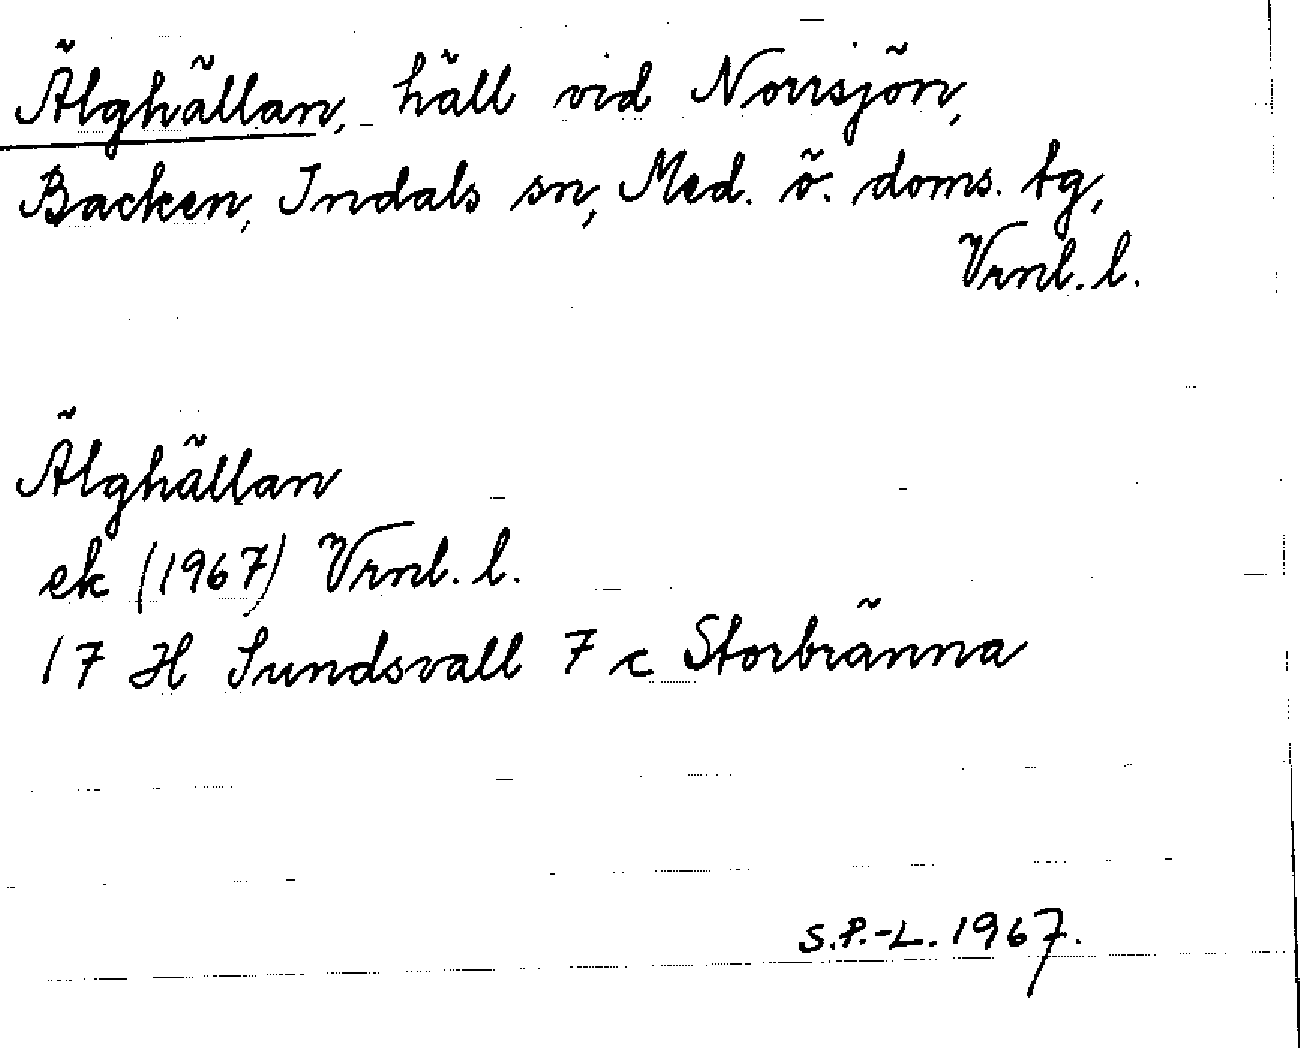 Älghällan, häll vid Norrsjön,
Backen, Indals sn, Med. ö. doms. tg,
Vrnl. l.
Älghällan
ek (1967) Vrnl. l.
17 H Sundsvall 7 c Storbränna
S.P.-L. 1967.